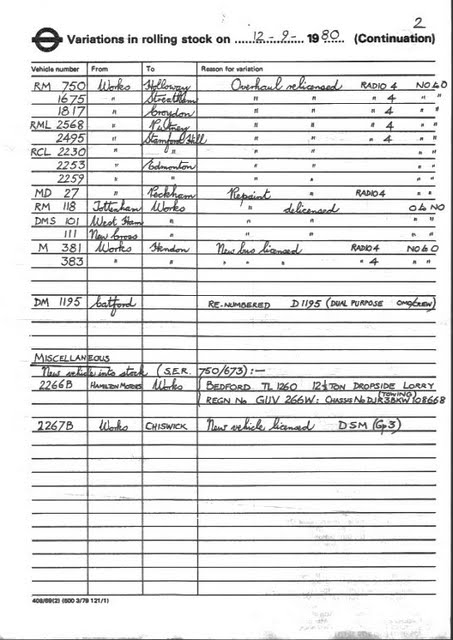 2
Variations in rolling stock on 12-9- 1980 (Continuation)
Vehicle number From To Reason for variation
RM 750 Works Holloway Overhaul relicensed RADIO 4 NO to O
1675 " Streatham " " " 4 " "
1817 " Croydon " " " 4 " "
RML 2568 " Putney " " " 4 " "
2495 " Stamford Hill " " " 4 " "
RCL 2230 " " " " " "
2253 " Edmonton " " " "
2259 " " " " " "
MD 27 " Peckham Repaint " RADIO 4 " "
RM 118 Tottenham Works " delicensed O to NO
DMS 101 West Ham " " " " "
111 New Cross " " " " "
M 381 Works Hendon New bus licensed RADIO 4 NO to O
383 " " " " " " 4 " "
DM 1195 Catford RE-NUMBERED D1195 (DUAL PURPOSE OMO/CREW)
MISCELLANEOUS
New vehicle into stock (S.E.R. 750/673) :—
2266B HAMILTON MOTORS Works BEDFORD TL 1260 12½ TON DROPSIDE LORRY
(TOWING)
REGN No GUV 266W: CHASSIS No DJR3BKW108668
2267B Works CHISWICK New vehicle licensed DSM (Gp3)
408/69(2) (500 3/79 121/1)